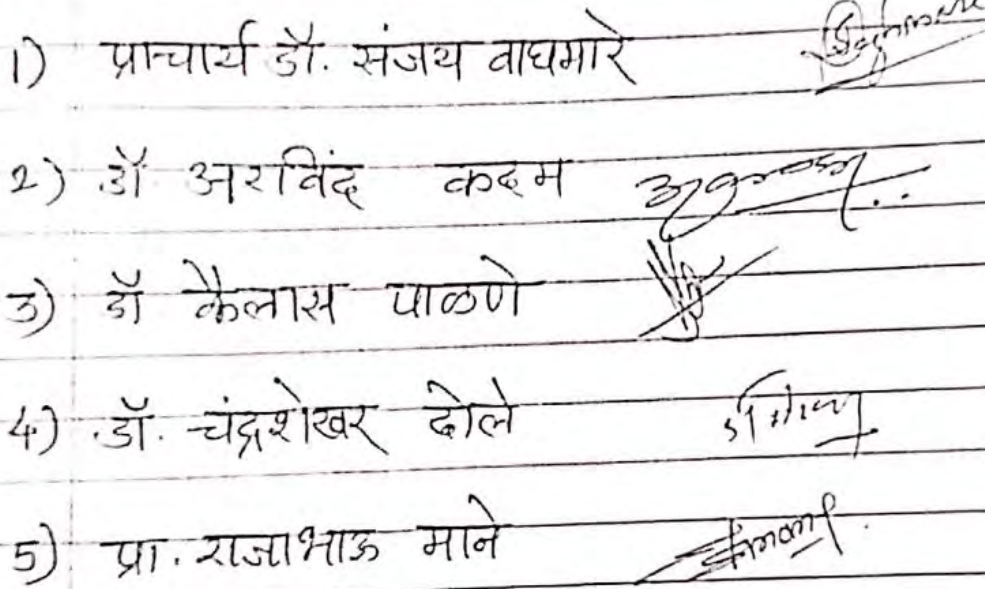 1) प्राचार्य डॉ. संजय वाघमारे
2) डॉ अरविंद कदम
3) डॉ कैलास पाळणे
4) डॉ. चंद्रशेखर ढोले
5) प्रा. राजाभाऊ माने